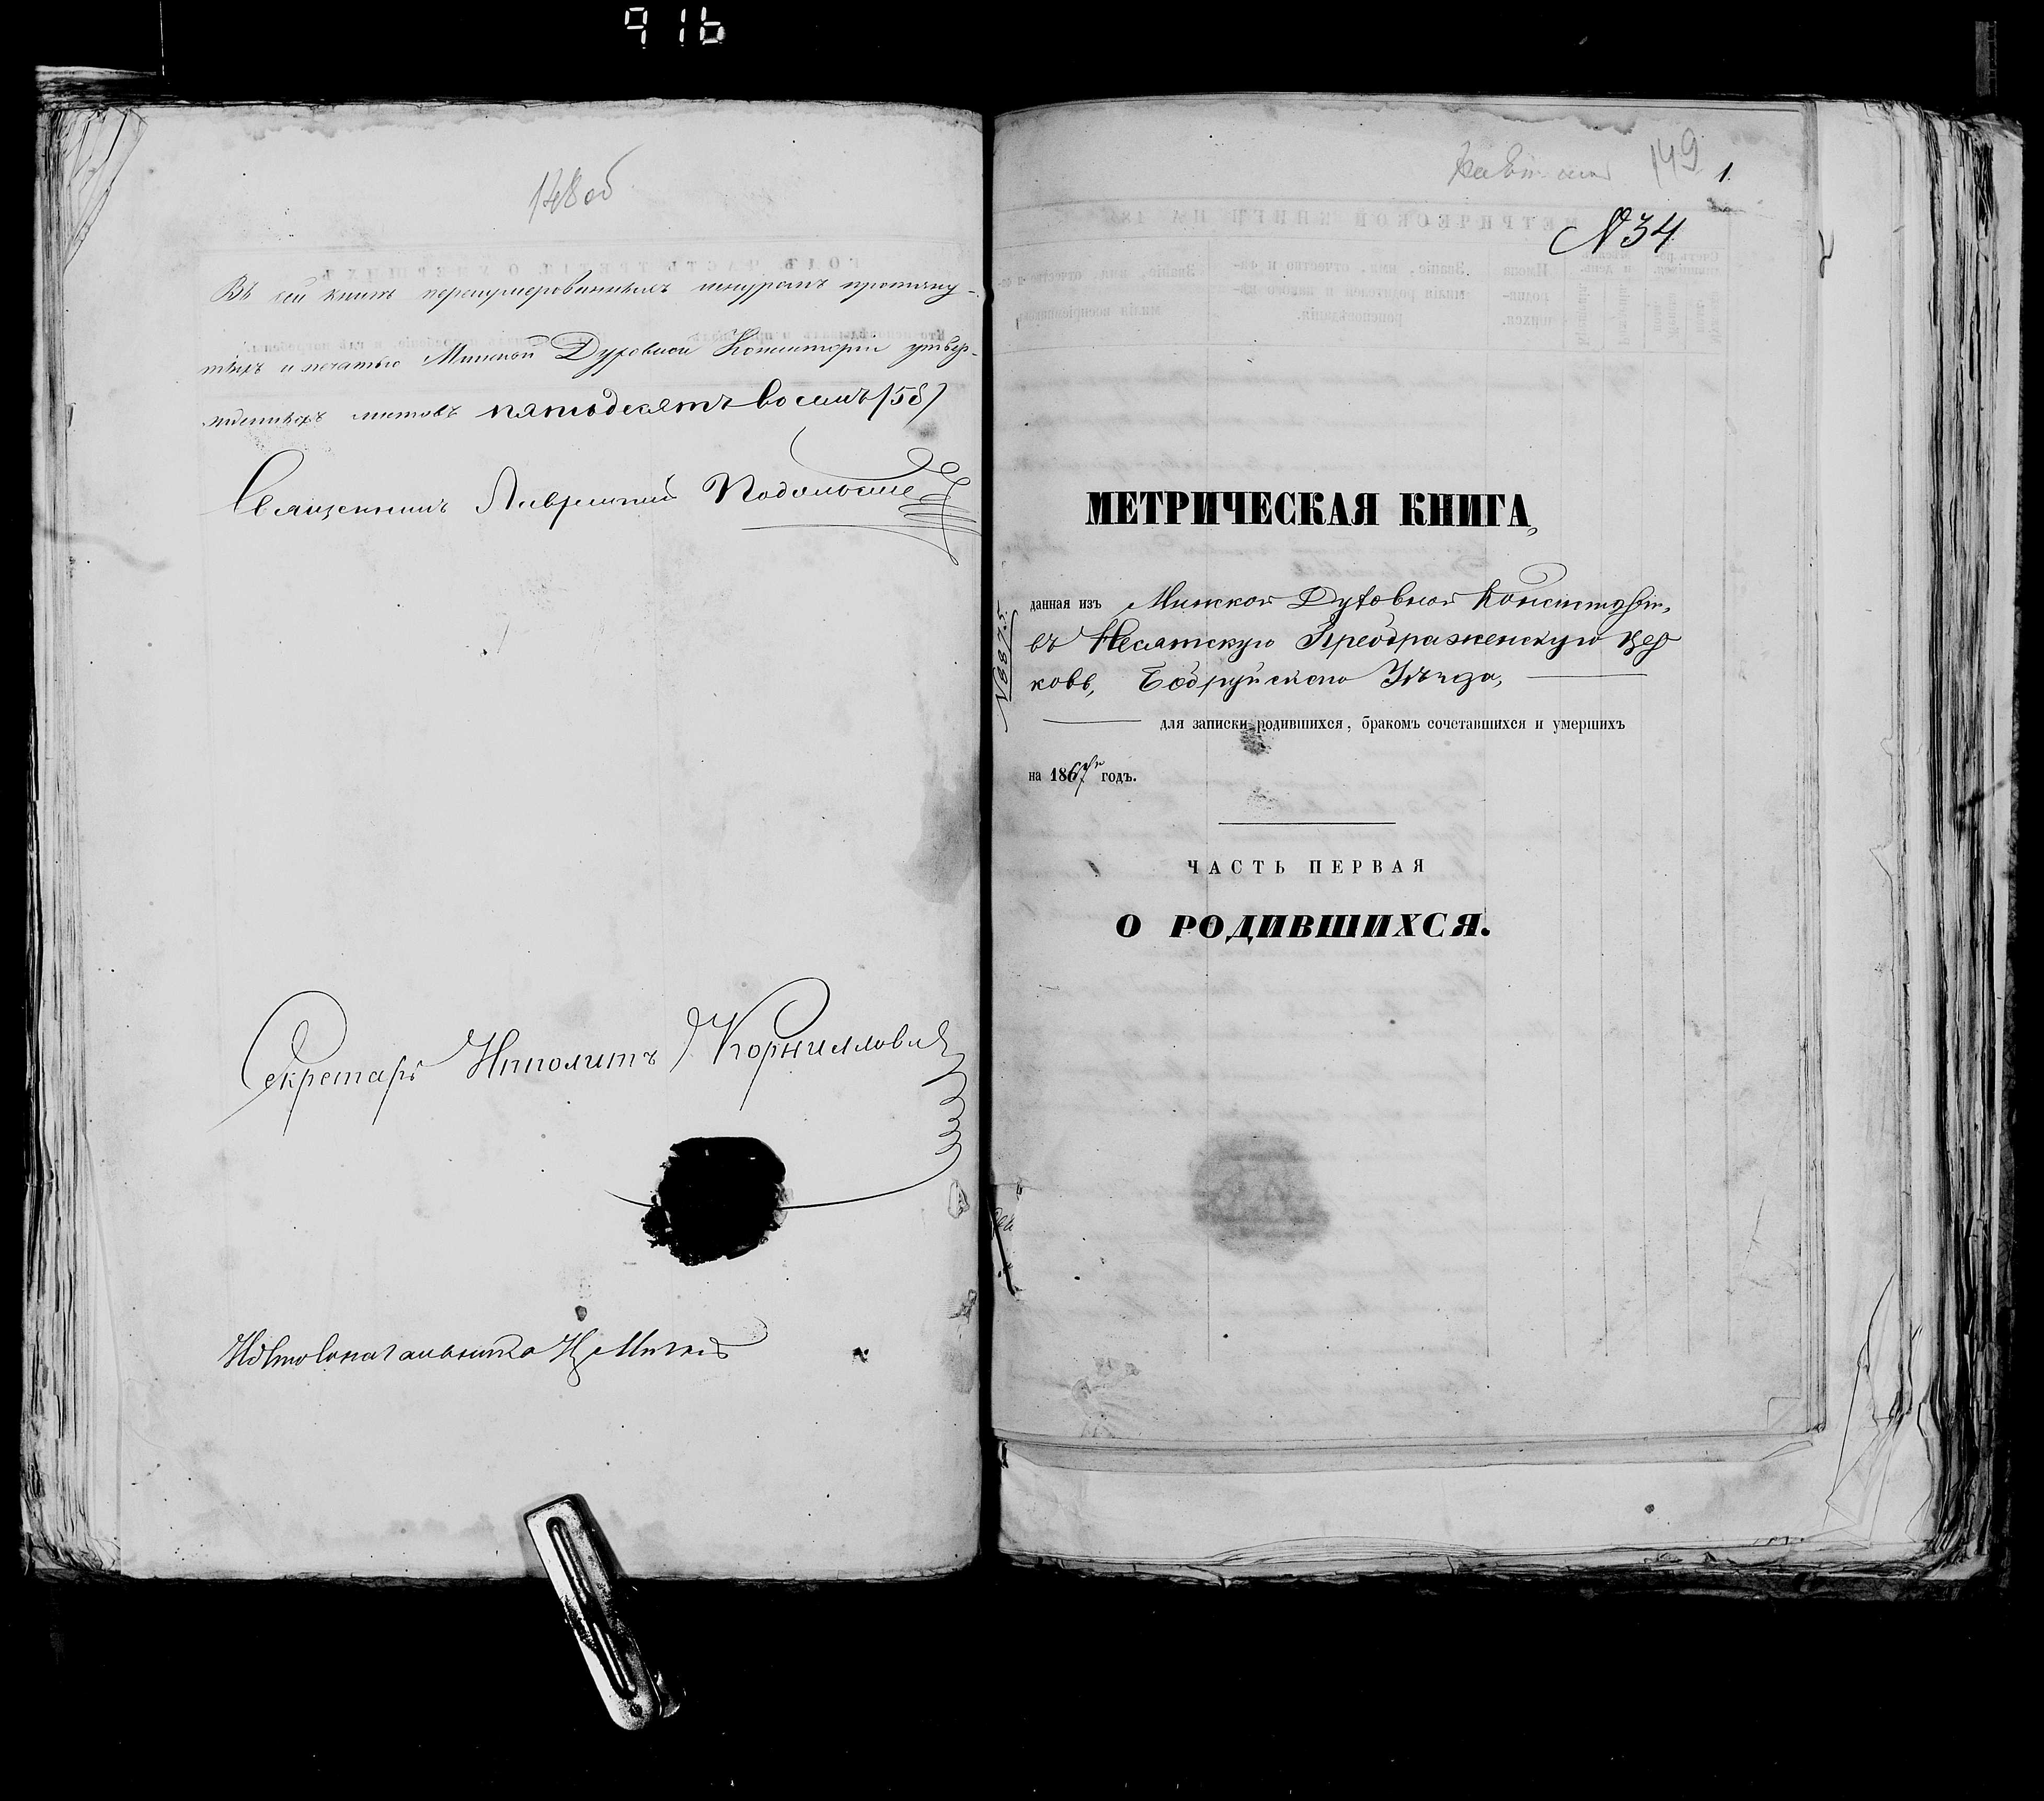 916
148 об
Въ сей книгѣ перенумерованныхъ шнуромъ протяну-
тыхъ и печатью Минской Духовной Консисторіи утвер-
жденныхъ листовъ пятьдесятъ восемь /58/
Священникъ Лаврентій
Секретарь Ипполитъ Корниловичъ
149
1.
№ 34
МЕТРИЧЕСКАЯ КНИГА,
№ 8875.
данная изъ Минской Духовной Консисторіи,
въ Несятскую Преображенскую цер
ковь, Бобруйскаго Уѣзда,
для записки родившихся, бракомъ сочетавшихся и умершихъ
на 1867й годъ.
ЧАСТЬ ПЕРВАЯ
О РОДИВШИХСЯ.